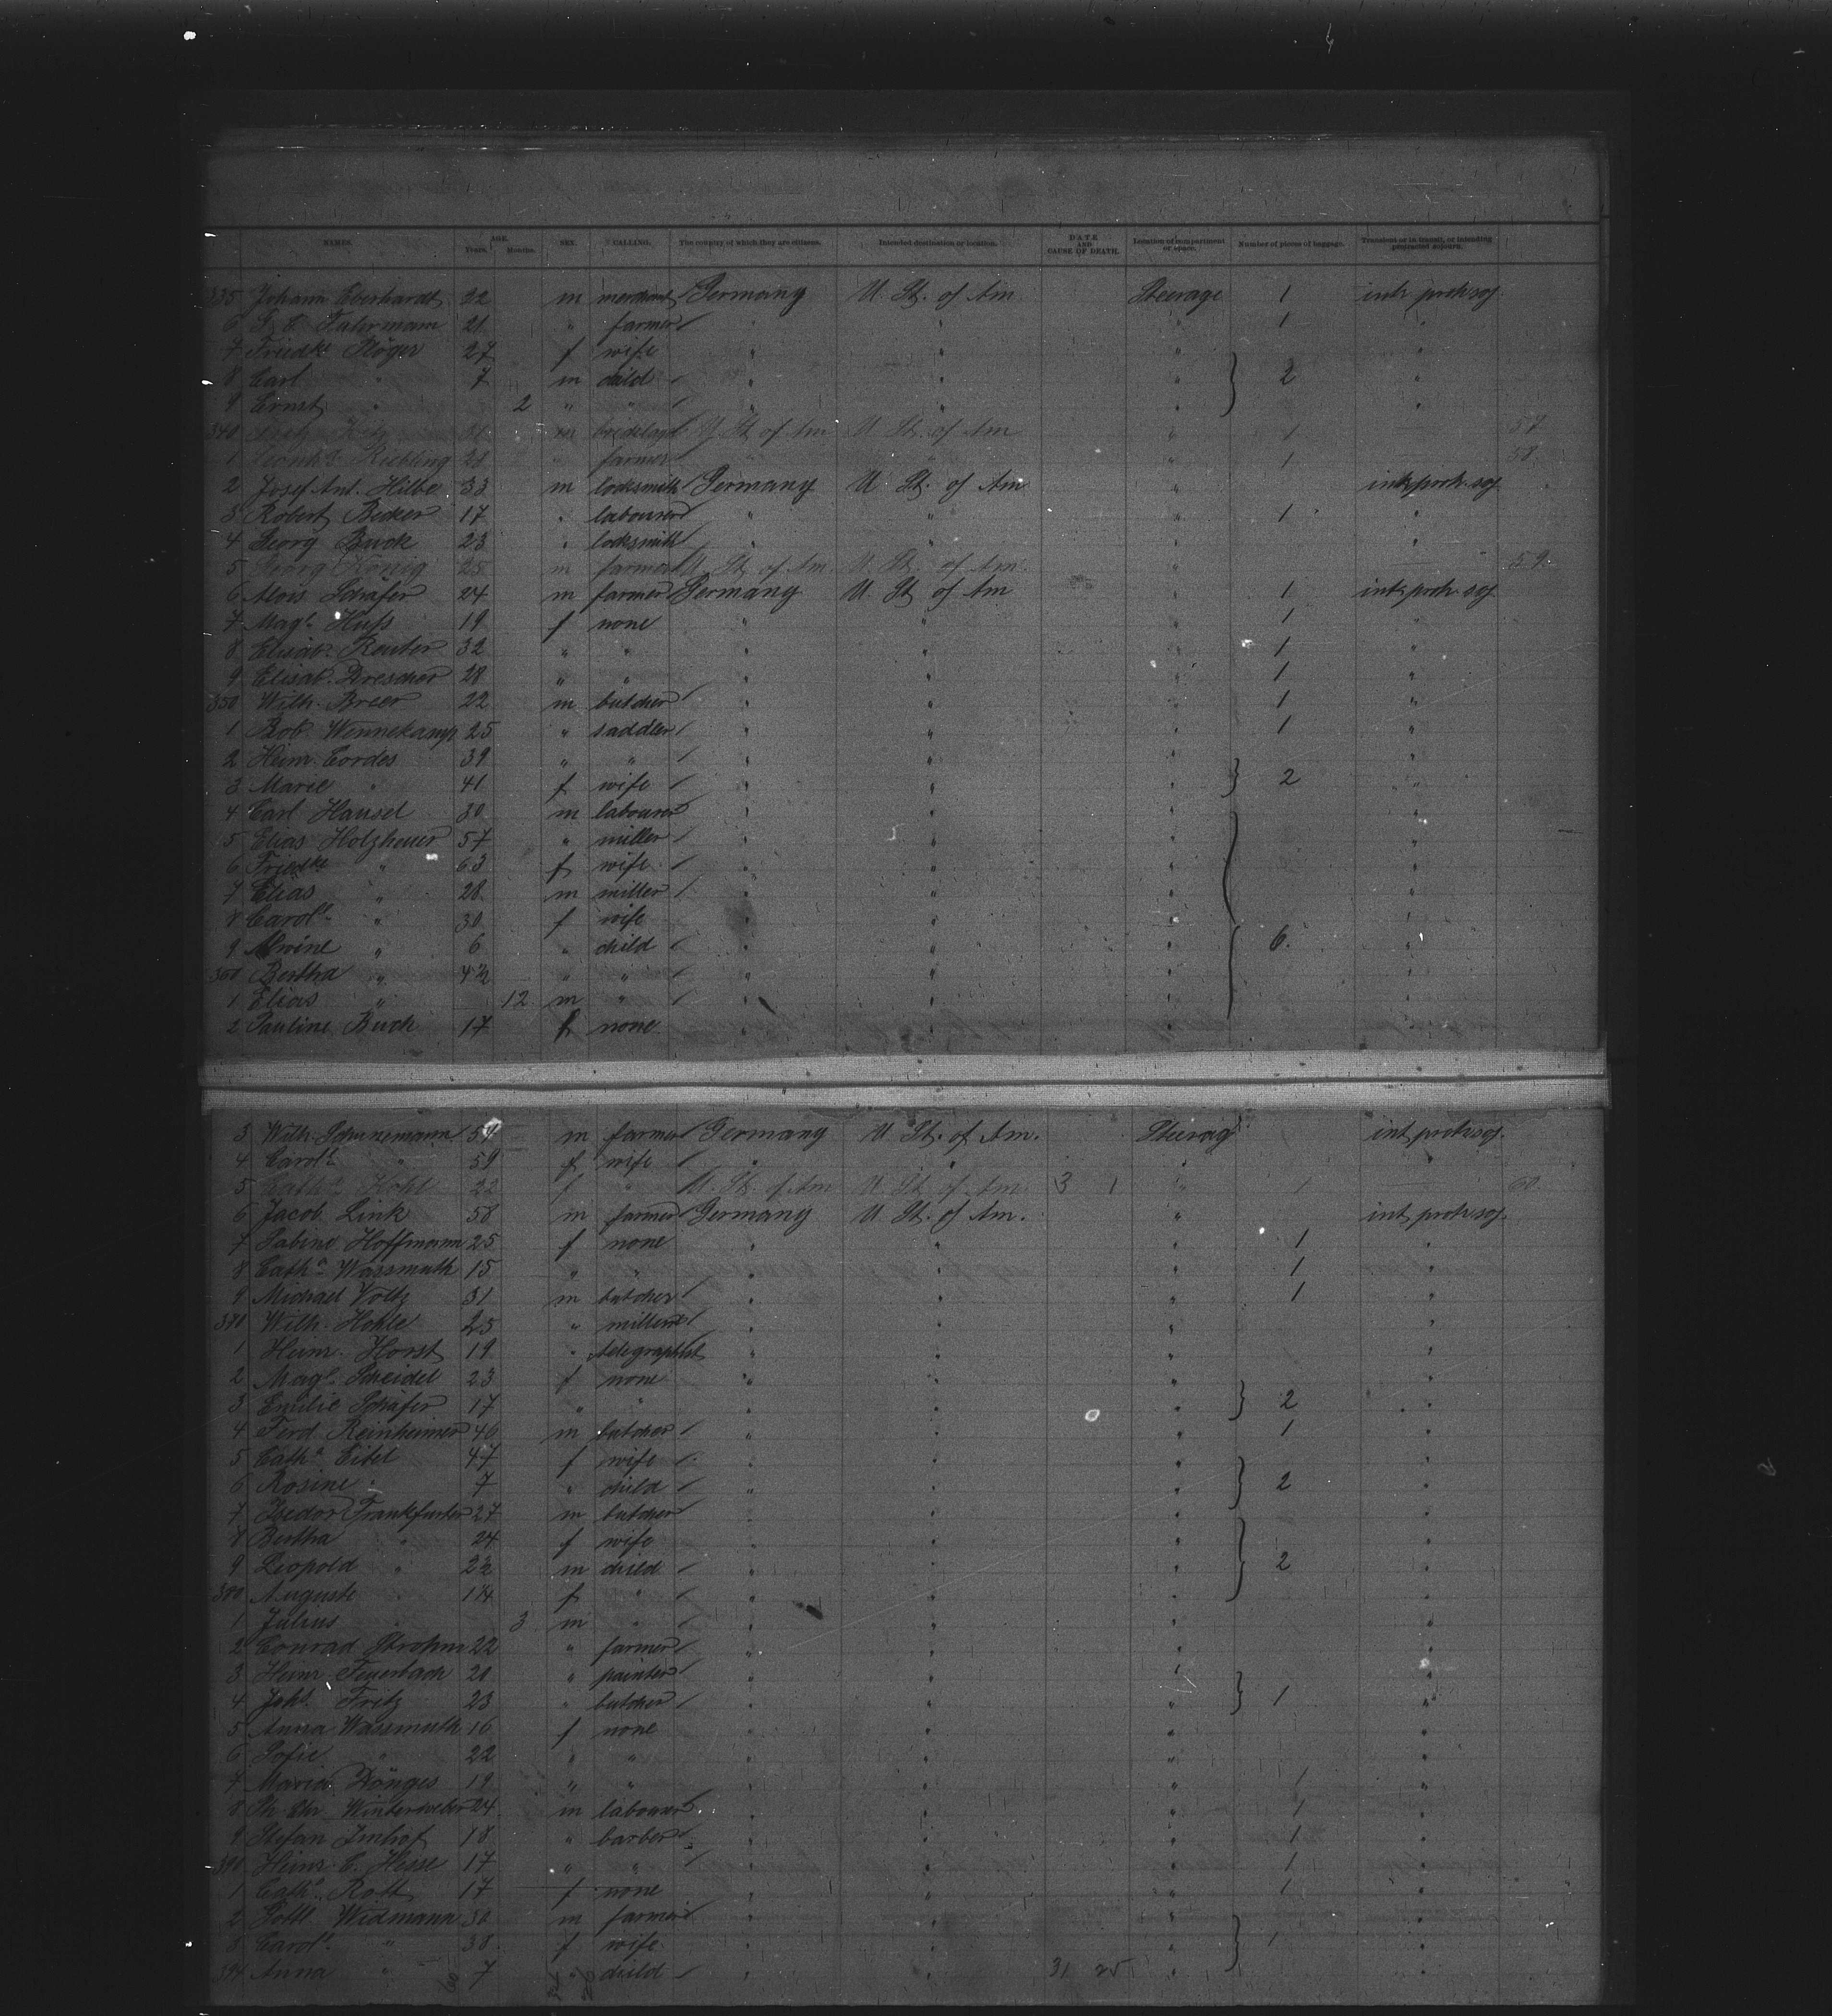 NAMES. AGE. Years. Months. SEX. CALLING. The country of which they are citizens. Intended destination or location. DATE AND CAUSE OF DEATH. Location of compartment or space. Number of pieces of baggage. Transient or in transit, or intending protracted sojourn.
335 Johann Eberhardt 22 m merchant Germany U. St. of Am Steerage 1 int protr soj.
6 Fuhrmann 21 " farmer " " " 1 "
7 Friedke Plöger 27 f wife " " " "
8 Carl " 7 m child " " " 2 "
9 Ernst " 2 " " " " " "
340 m U St of Am U. St. of Am " 1 57
1 Riebling 28 farmer " 1 58.
2 Josef Ant. Hilbe 33 m locksmith Germany U. St. of Am " int protr. soj
3 Robert Becker 17 " labourer " " " 1 "
4 Georg Buck 23 " locksmith " " " "
5 Georg König 25 m farmer U St of Am U. St. of Am " 59.
6 Alois Schäfer 24 m farmer Germany U St of Am " 1 int protr. soj
7 Magd. Huss 19 f none " " " 1 "
8 Elisab. Reuter 32 " " " " " 1 "
9 Elisab. Drescher 28 " " " " " 1 "
350 Wilh. Breer 22 m butcher " " " 1 "
1 Rob. Wennekamp 25 " saddler " " " 1 "
2 Heinr. Cordes 39 " " " " " "
3 Marie " 41 f wife " " " 2 "
4 Carl Hansel 30 m labourer " " " "
5 Elias Holzheuer 57 " miller " " " "
6 Friedke " 63 f wife " " " "
7 Elias " 28 m miller " " " "
8 Carole " 30 f wife " " " "
9 Alwine " 6 " child " " " 6. "
360 Bertha " 4½ " " " " " "
1 Elias " 12 m " " " " "
2 Pauline Buch 17 f none " " "
3 Wilh. Schünemann 59 m farmer Germany U St. of Am. Steerage int protr soj.
4 Carole " 59 f wife " " " "
5 Cath. Kohl 22 f " U. St. of Am U St of Am 3 1 " 1 60
6 Jacob Link 58 m farmer Germany U St. of Am. " int protr soj.
7 Sabine Hoffmann 25 f none " " " 1 "
8 Catha Wassmuth 15 " " " " " 1 "
9 Michael Voltz 31 m butcher " " " 1 "
370 Wilh. Hohle 25 " " " " "
1 Heinr. Horst 19 " telegraphist " " " "
2 Magd. Scheidel 23 f none " " " "
3 Emilie Schäfer 17 " " " " 2 "
4 Ferd. Reinheimer 46 m butcher " " " 1 "
5 Catha Eitel 47 f wife " " " "
6 Rosine " 7 " child " " " 2 "
7 Isedor Frankfurter 27 m butcher " " " "
8 Bertha " 24 f wife " " "
9 Leopold " 2½ m child " " " 2 "
380 Auguste " 1¼ f " " " " "
1 Julius " 3 m " " " " "
2 Conrad Strohm 22 " farmer " " " "
3 Heinr. Feuerbach 20 " painter " " " "
4 Johs. Fritz 23 " butcher " " " 1 "
5 Anna Wassmuth 16 f none " " " "
6 Sofie " 22 " " " " " "
7 Maria Dönges 19 " " " " " 1 "
8 Ph. Chr. 24 m labourer " " " 1 "
9 Stefan Imhof 18 " barber " " " 1 "
390 Heinr. C. Hesse 17 " " " " " 1 "
1 Catha Roth 17 f none " " " 1 "
2 Gottl. Widmann 30 m farmer " " " "
3 Carole " 38 f wife " " " 1 "
394 Anna " 7 " child " " 31 25 " "